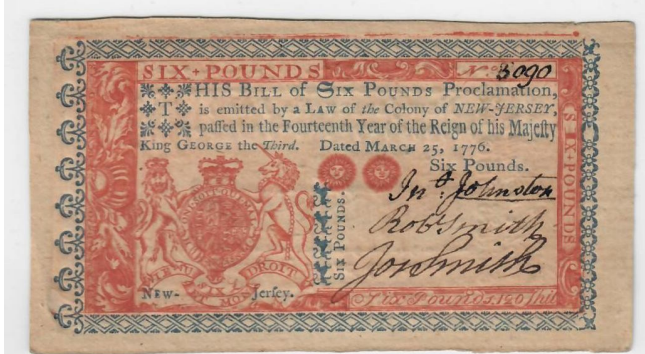 SIX + POUNDS No. 3090
THIS BILL of Six Pounds Proclamation,
is emitted by a LAW of the Colony of NEW-JERSEY,
paſſed in the Fourteenth Year of the Reign of his Majeſty
King GEORGE the Third. Dated MARCH 25, 1776.
Six Pounds.
Jnº. Johnston
Robt Smith
Jos Smith
SIX POUNDS.
SIX + POUNDS
DIEU
DROIT
NEW- Jerſey.
Six Pounds